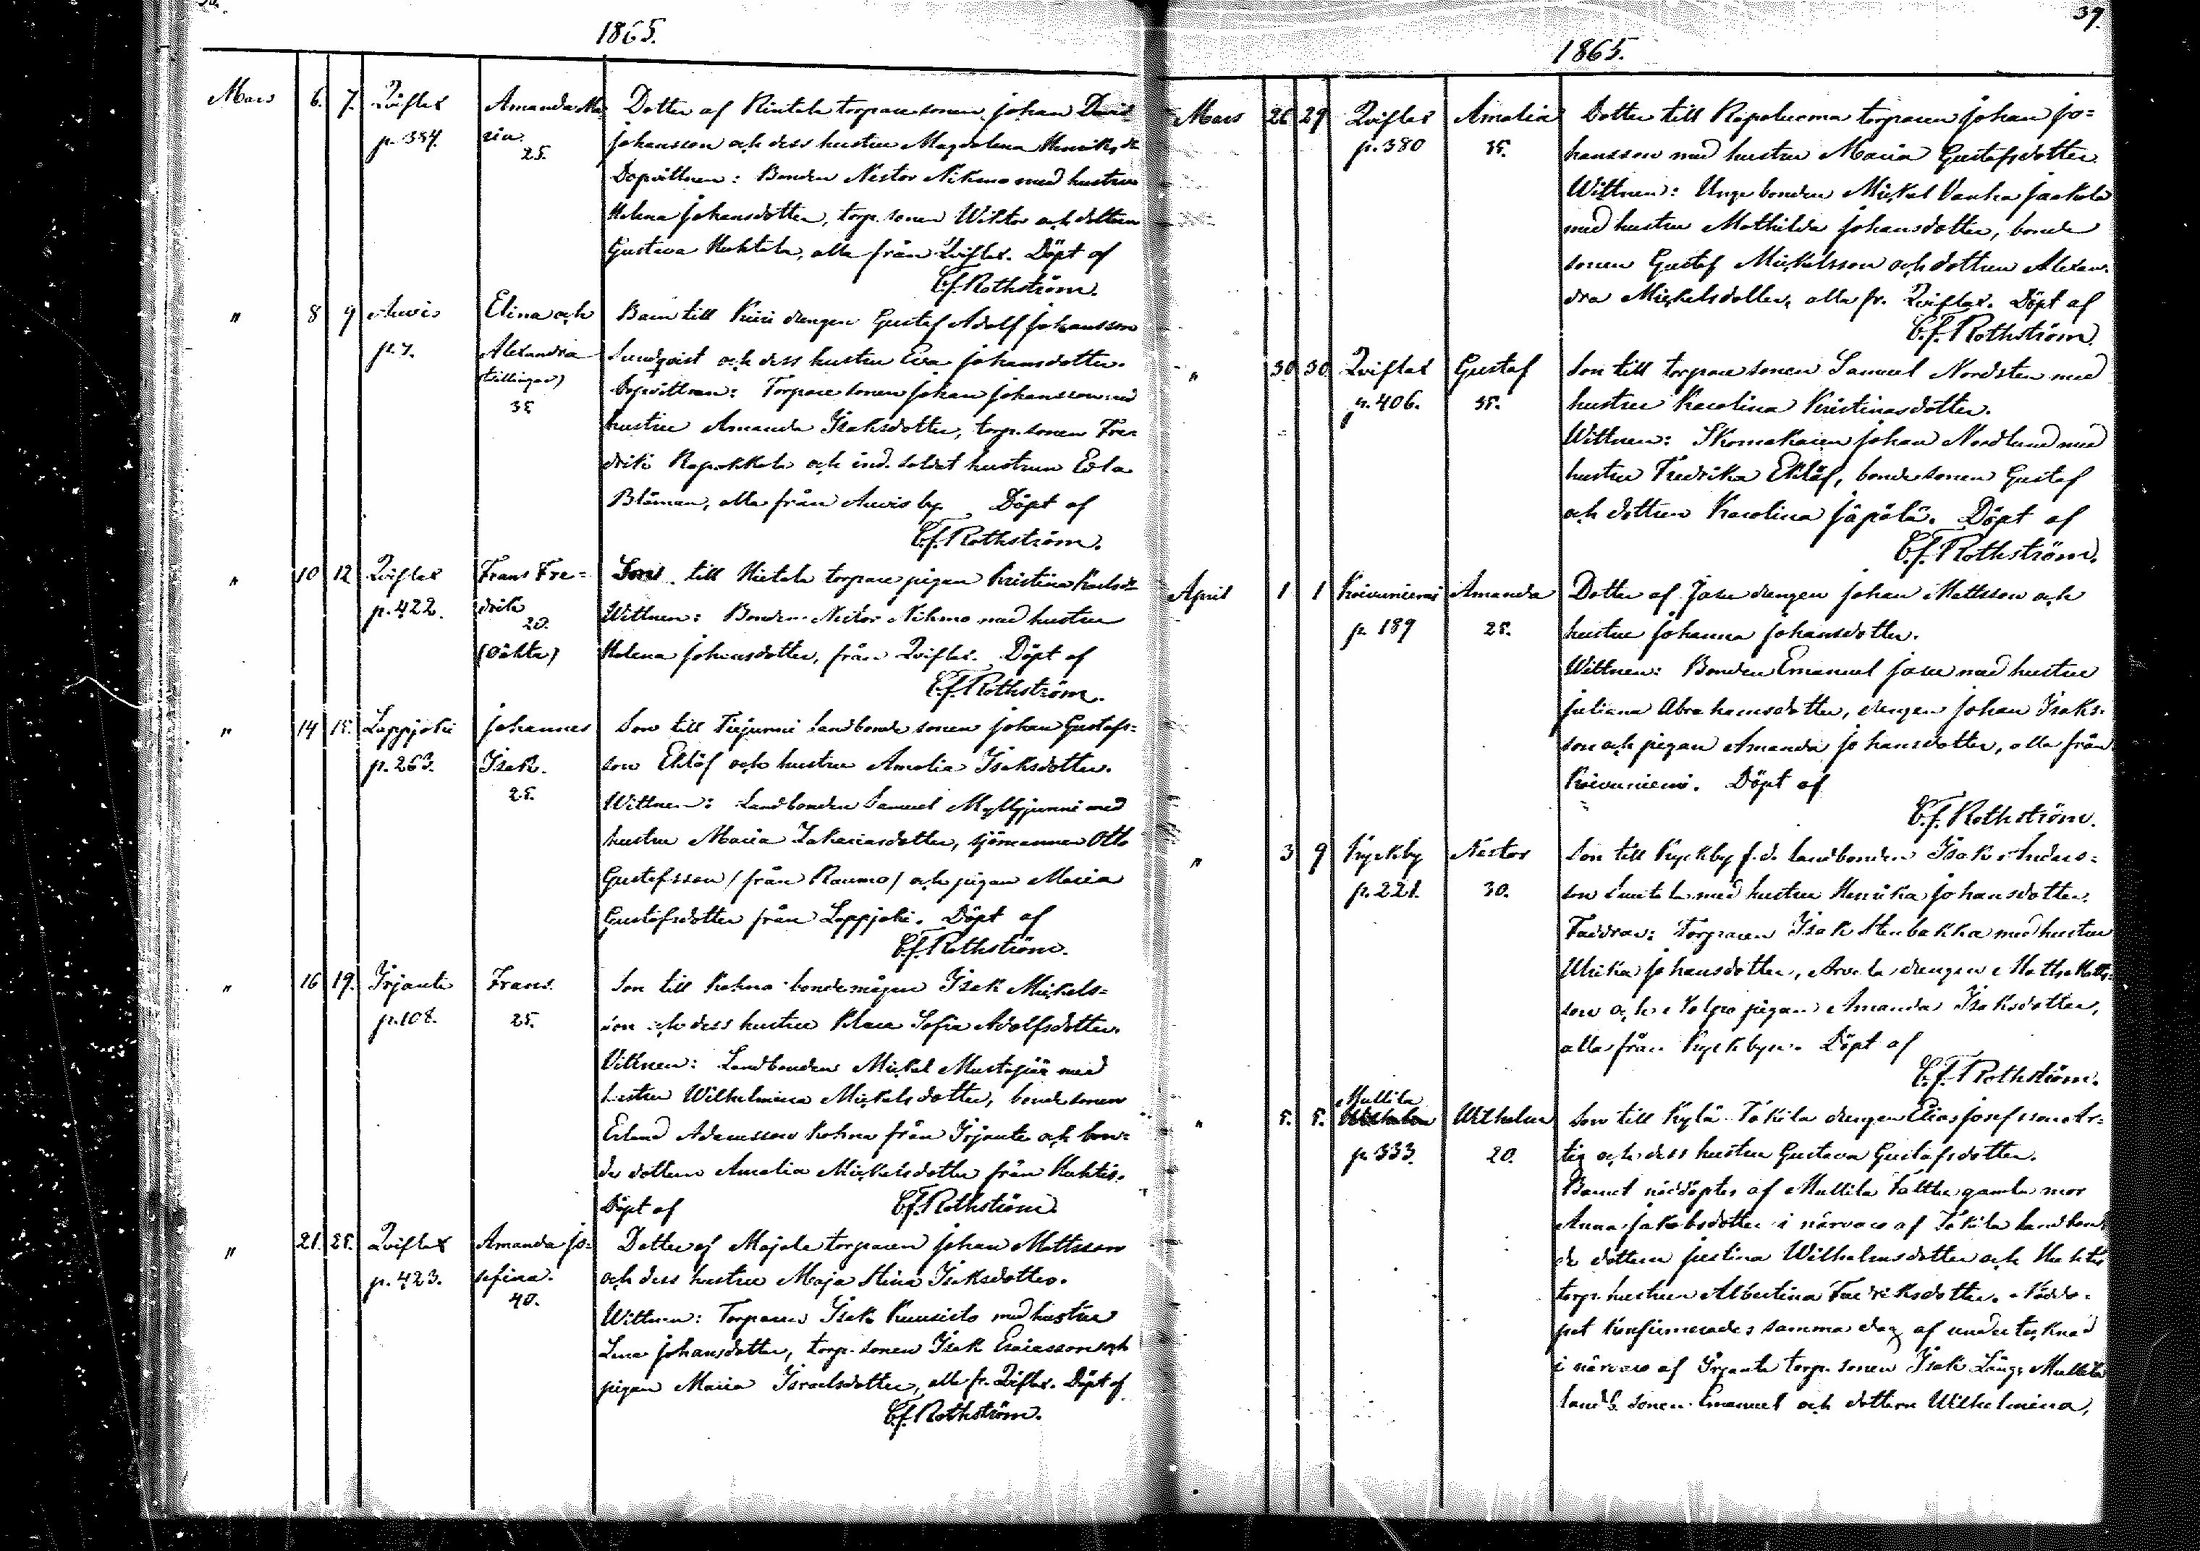 1865.
Mars 6. 7. Qviflax Amanda Ma Dotter af torparesonen Johan David
p. 384. ria. Johansson och dess hustru Magdalena Henriksdr
25. Dopvittnen: Bonden Nestor Nihmo med hustru
Helena Johansdotter, torp. sonen Wiktor och dottren
Gustava alla från Qviflax. Döpt af
C.J. Rothström.
" 8 9 Auvis Elina och Barn till drengen Gustaf Adolf Johansson
p. 7. Alexandra Sundqvist och dess hustru Eva Johansdotter.
(tvillingar) Dopvittnen: Torparesonen Johan Johansson med
35 hustru Amanda Isaksdotter, torp. sonen Fre-
drik och ind. soldat hustrun Eva
alla från Auvis by. Döpt af
C.J. Rothström.
" 10 12 Qviflax Frans Fre- Son till Hietala torpare pigan Kristina Karlsdr
p. 422. drik Wittnen: Bonden Nestor Nihmo med hustru
20.
(oäkta) Helena Johansdotter, från Qviflax. Döpt af
C.J. Rothström.
" 14 15. Lappjoki Johannes Son till landbonde sonen Johan Gustafs-
p. 263. Isak. son Eklöf och hustru Amalia Isaksdotter.
25. Wittnen: Landbonden Samuel Myllyjunni med
hustru Maria Zakariasdotter, sjömannen Otto
Gustafsson (från Raumo) och pigan Maria
Gustafsdotter från Lappjoki. Döpt af
C.J. Rothström.
" 16 19. Irjante Frans. Son till Kohna bondemågen Isak Mickels-
p. 108. 25. son och dess hustru Klara Sofia Adolfsdotter.
Vittnen: Landbonden Mickel med
hustru Wilhelmina Mickelsdotter, bondesonen
Erland Adamsson Kohna från Irjante och bon-
de dottren Amalia Mickelsdotter från Huhtis.
Döpt af C.J. Rothström.
" 21. 25. Qviflax Amanda Jo- Dotter af Majala torparen Johan Mattsson
p. 423. sefina. och dess hustru Maja Stina Isaksdotter.
40. Wittnen: Torparen Isak Kuusisto med hustru
Lena Johansdotter, torp. sonen Isak Esaiasson och
pigan Maria Israelsdotter, alla fr. Qviflax. Döpt af
C.J. Rothström.
39.
1865.
Mars 26 29 Qviflax Amalia Dotter till torparen Johan Jo-
p. 380 35. hansson med hustru Maria Gustafsdotter.
Wittnen: Unge bonden Mickel Vanha Jaakola
med hustru Mathilda Johansdotter, bonde
sonen Gustaf Mickelsson och dottren Alexan-
dra Mickelsdotter, alla fr. Qviflax. Döpt af
C.J. Rothström.
" 30 30 Qviflax Gustaf Son till torpare sonen Samuel Nordsten med
p. 406. 35. hustru Karolina Kristinasdotter.
Wittnen: Skomakaren Johan Nordlund med
hustru Fredrika Eklöf, bondesonen Gustaf
och dottren Karolina Döpt af
C.J. Rothström.
April 1 1 Koivuniemi Amanda Dotter af Jase drengen Johan Mattsson och
p. 189 25. hustru Johanna Johansdotter.
Wittnen: Bonden Emanuel Jase med hustru
Juliana Abrahamsdotter, drengen Johan Isaks-
son och pigan Amanda Johansdotter, alla från
Koivuniemi. Döpt af
C.J. Rothström.
" 3 9 Kyckby Nestor Son till Kyckby f.d. landbonden Isak Anders-
p. 221. 30. son med hustru Henrika Johansdotter.
Faddrar: Torparen Isak Stenbakka med hustru
Ulrika Johansdotter, drengen Matts Matts-
son och pigan Amanda Isaksdotter,
alla från Kyckbyn. Döpt af
C.J. Rothström.
Mullila
" 5. 5. Wilhelm Son till Kylä Täkilä drengen Elias Josefsson Ar-
p. 333. 20. tig och dess hustru Gustava Gustafsdotter.
Barnet nöddöptes af Mullila gamla mor
Anna Jakobsdotter i närvaro af Täkilä landbon-
de dottren Justina Wilhelmsdotter och Huhtis
torp. hustrun Albertina Fredriksdotter. Nöddo-
pet konfirmerades samma dag af undertecknad
i närvaro af Irjante torp. sonen Isak Lång, Mullila
landb. sonen Emanuel och dottren Wilhelmina,